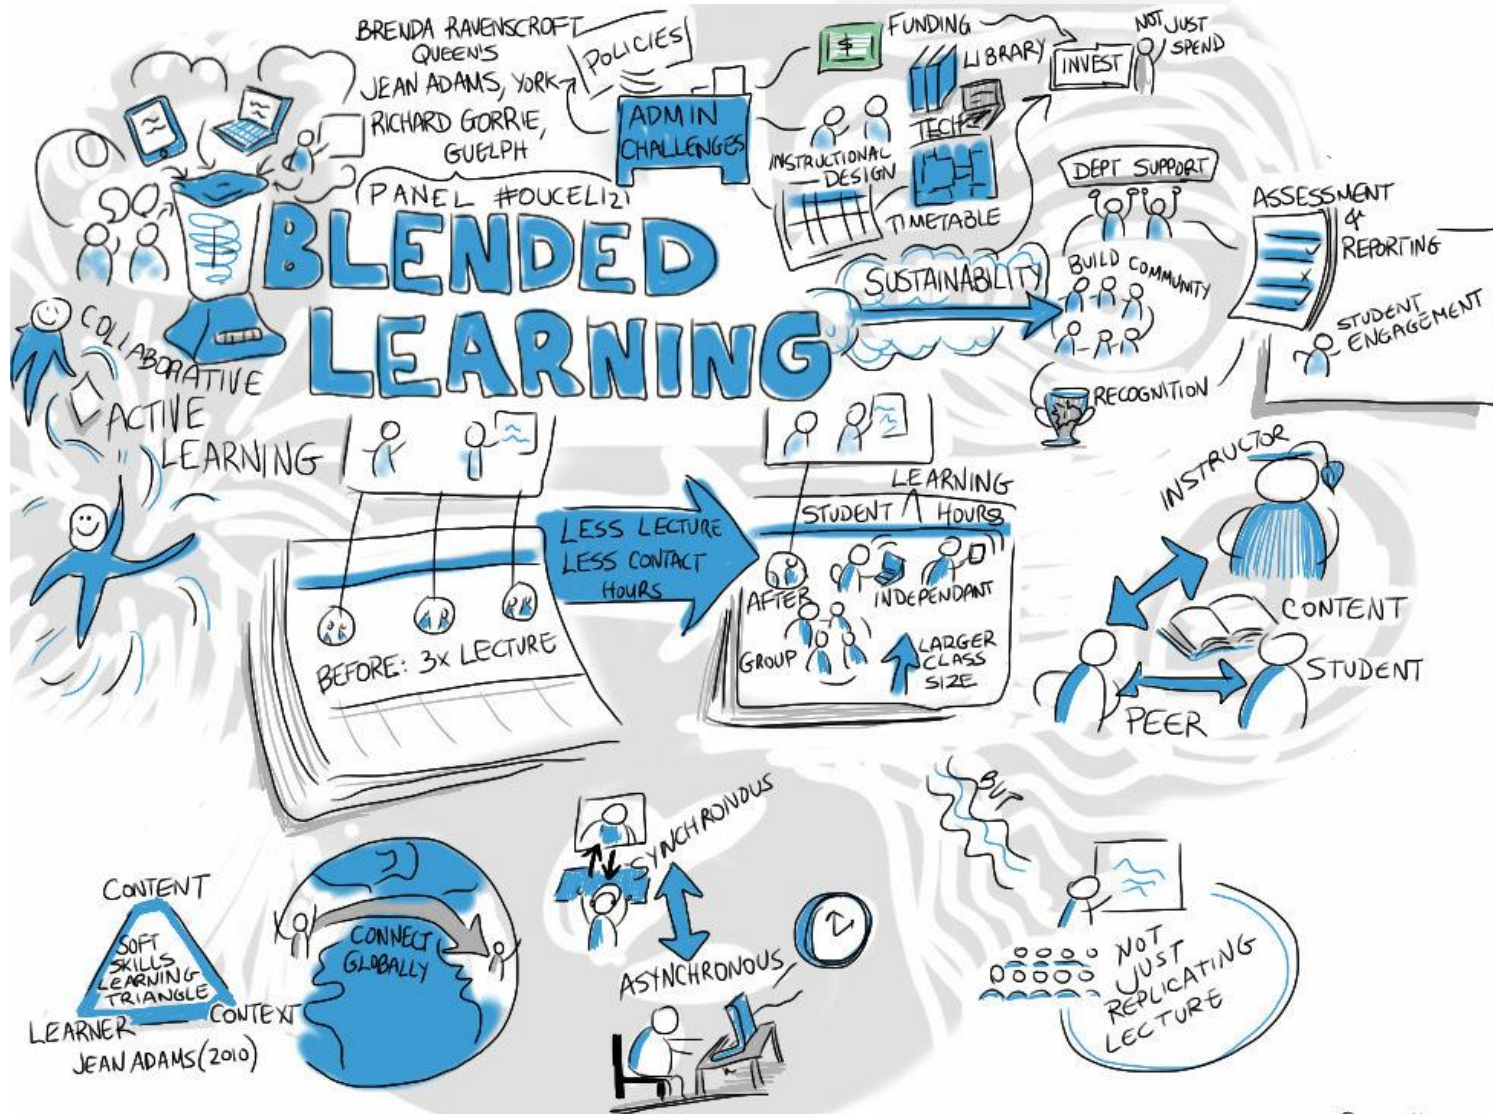 BRENDA RAVENSCROFT
QUEEN'S
JEAN ADAMS, YORK
RICHARD GORRIE,
GUELPH
PANEL #OUCELI21
BLENDED
LEARNING
POLICIES
ADMIN
CHALLENGES
$
FUNDING
LIBRARY
TECH
INSTRUCTIONAL
DESIGN
TIMETABLE
INVEST
NOT JUST
SPEND
SUSTAINABILITY
DEPT SUPPORT
BUILD COMMUNITY
RECOGNITION
ASSESSMENT
&
REPORTING
STUDENT
ENGAGEMENT
COLLABORATIVE
ACTIVE
LEARNING
BEFORE: 3X LECTURE
LESS LECTURE
LESS CONTACT
HOURS
LEARNING
STUDENT HOURS
AFTER
INDEPENDANT
GROUP
LARGER
CLASS
SIZE
INSTRUCTOR
CONTENT
STUDENT
PEER
CONTENT
SOFT
SKILLS
LEARNING
TRIANGLE
LEARNER
CONTEXT
JEAN ADAMS (2010)
CONNECT
GLOBALLY
SYNCHRONOUS
ASYNCHRONOUS
BUT
NOT
JUST
REPLICATING
LECTURE